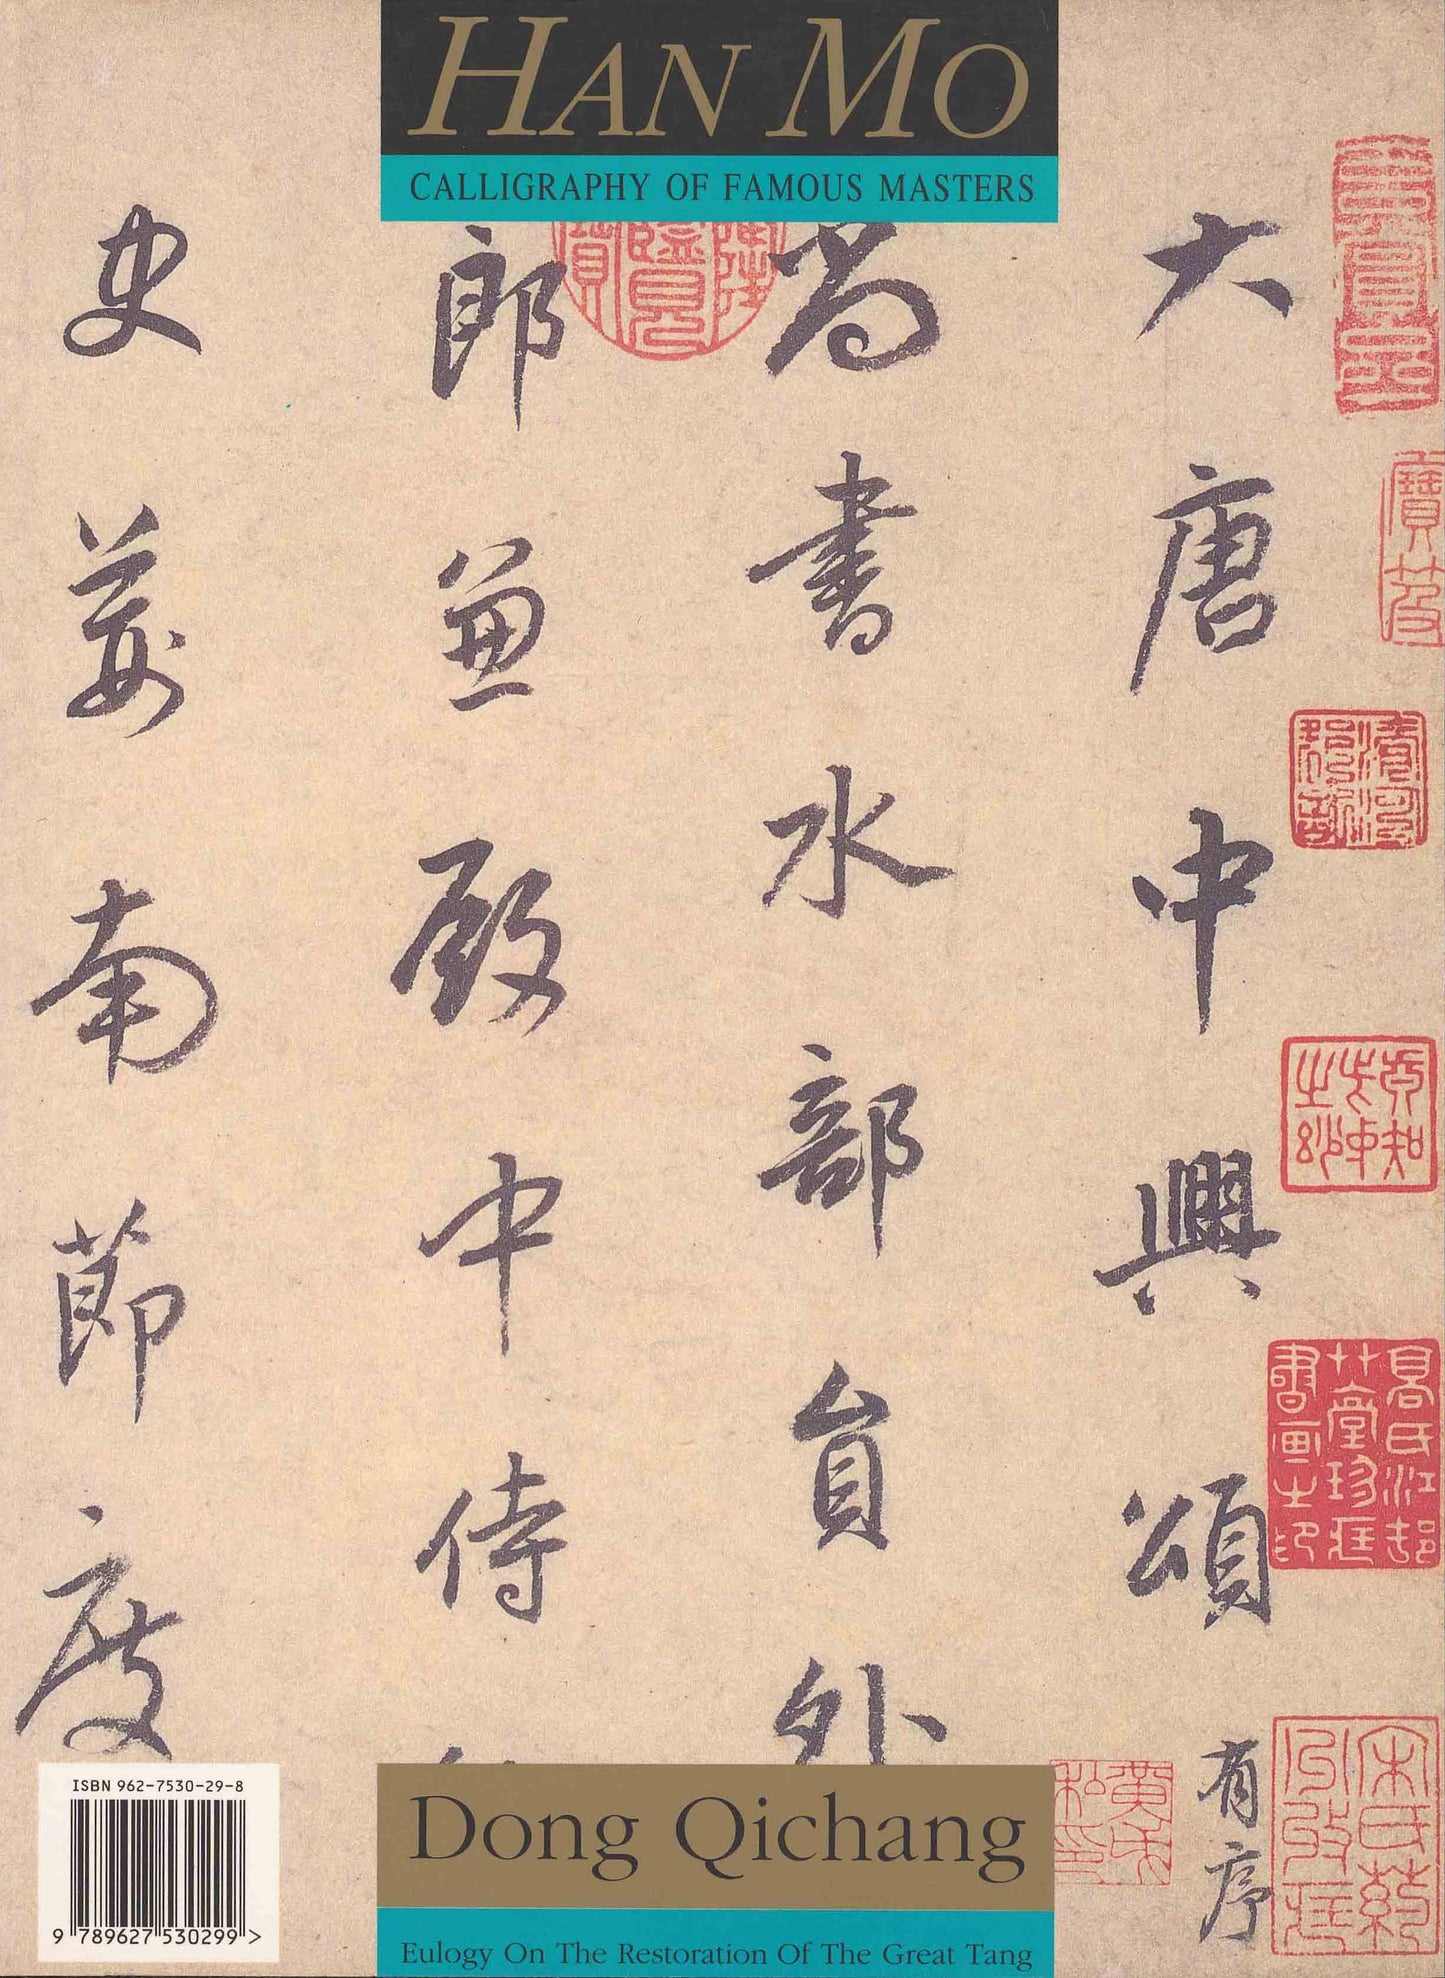 HAN MO
CALLIGRAPHY OF FAMOUS MASTERS
大唐中興頌有序
尚書水部員外
郎兼殿中侍
史荊南節度
ISBN 962-7530-29-8
9 789627 530299 >
Dong Qichang
Eulogy On The Restoration Of The Great Tang